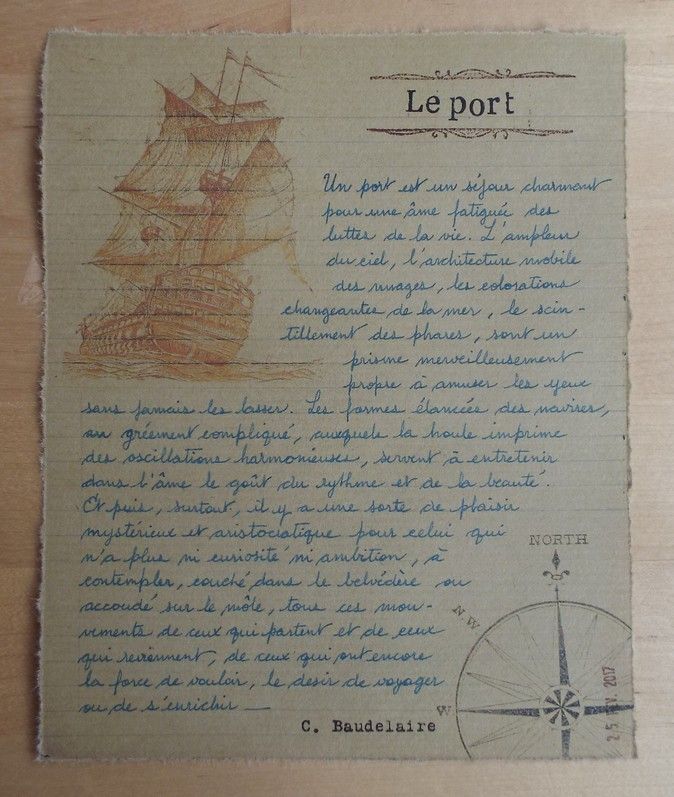 Le port
Un port est un séjour charmant
pour une âme fatiguée des
luttes de la vie. L'ampleur
du ciel, l'architecture mobile
des nuages, les colorations
changeantes de la mer, le scin-
tillement des phares, sont un
prisme merveilleusement
propre à amuser les yeux
sans jamais les lasser. Les formes élancées des navires,
au gréement compliqué, auxquels la houle imprime
des oscillations harmonieuses, servent à entretenir
dans l'âme le goût du rythme et de la beauté.
Et puis, surtout, il y a une sorte de plaisir
mystérieux et aristocratique pour celui qui
n'a plus ni curiosité ni ambition, à
contempler, couché dans le belvédère ou
accoudé sur le môle, tous ces mou-
vements de ceux qui partent et de ceux
qui reviennent, de ceux qui ont encore
la force de vouloir, le desir de voyager
ou de s'enrichir —
C. Baudelaire
NORTH
NW
W
2017